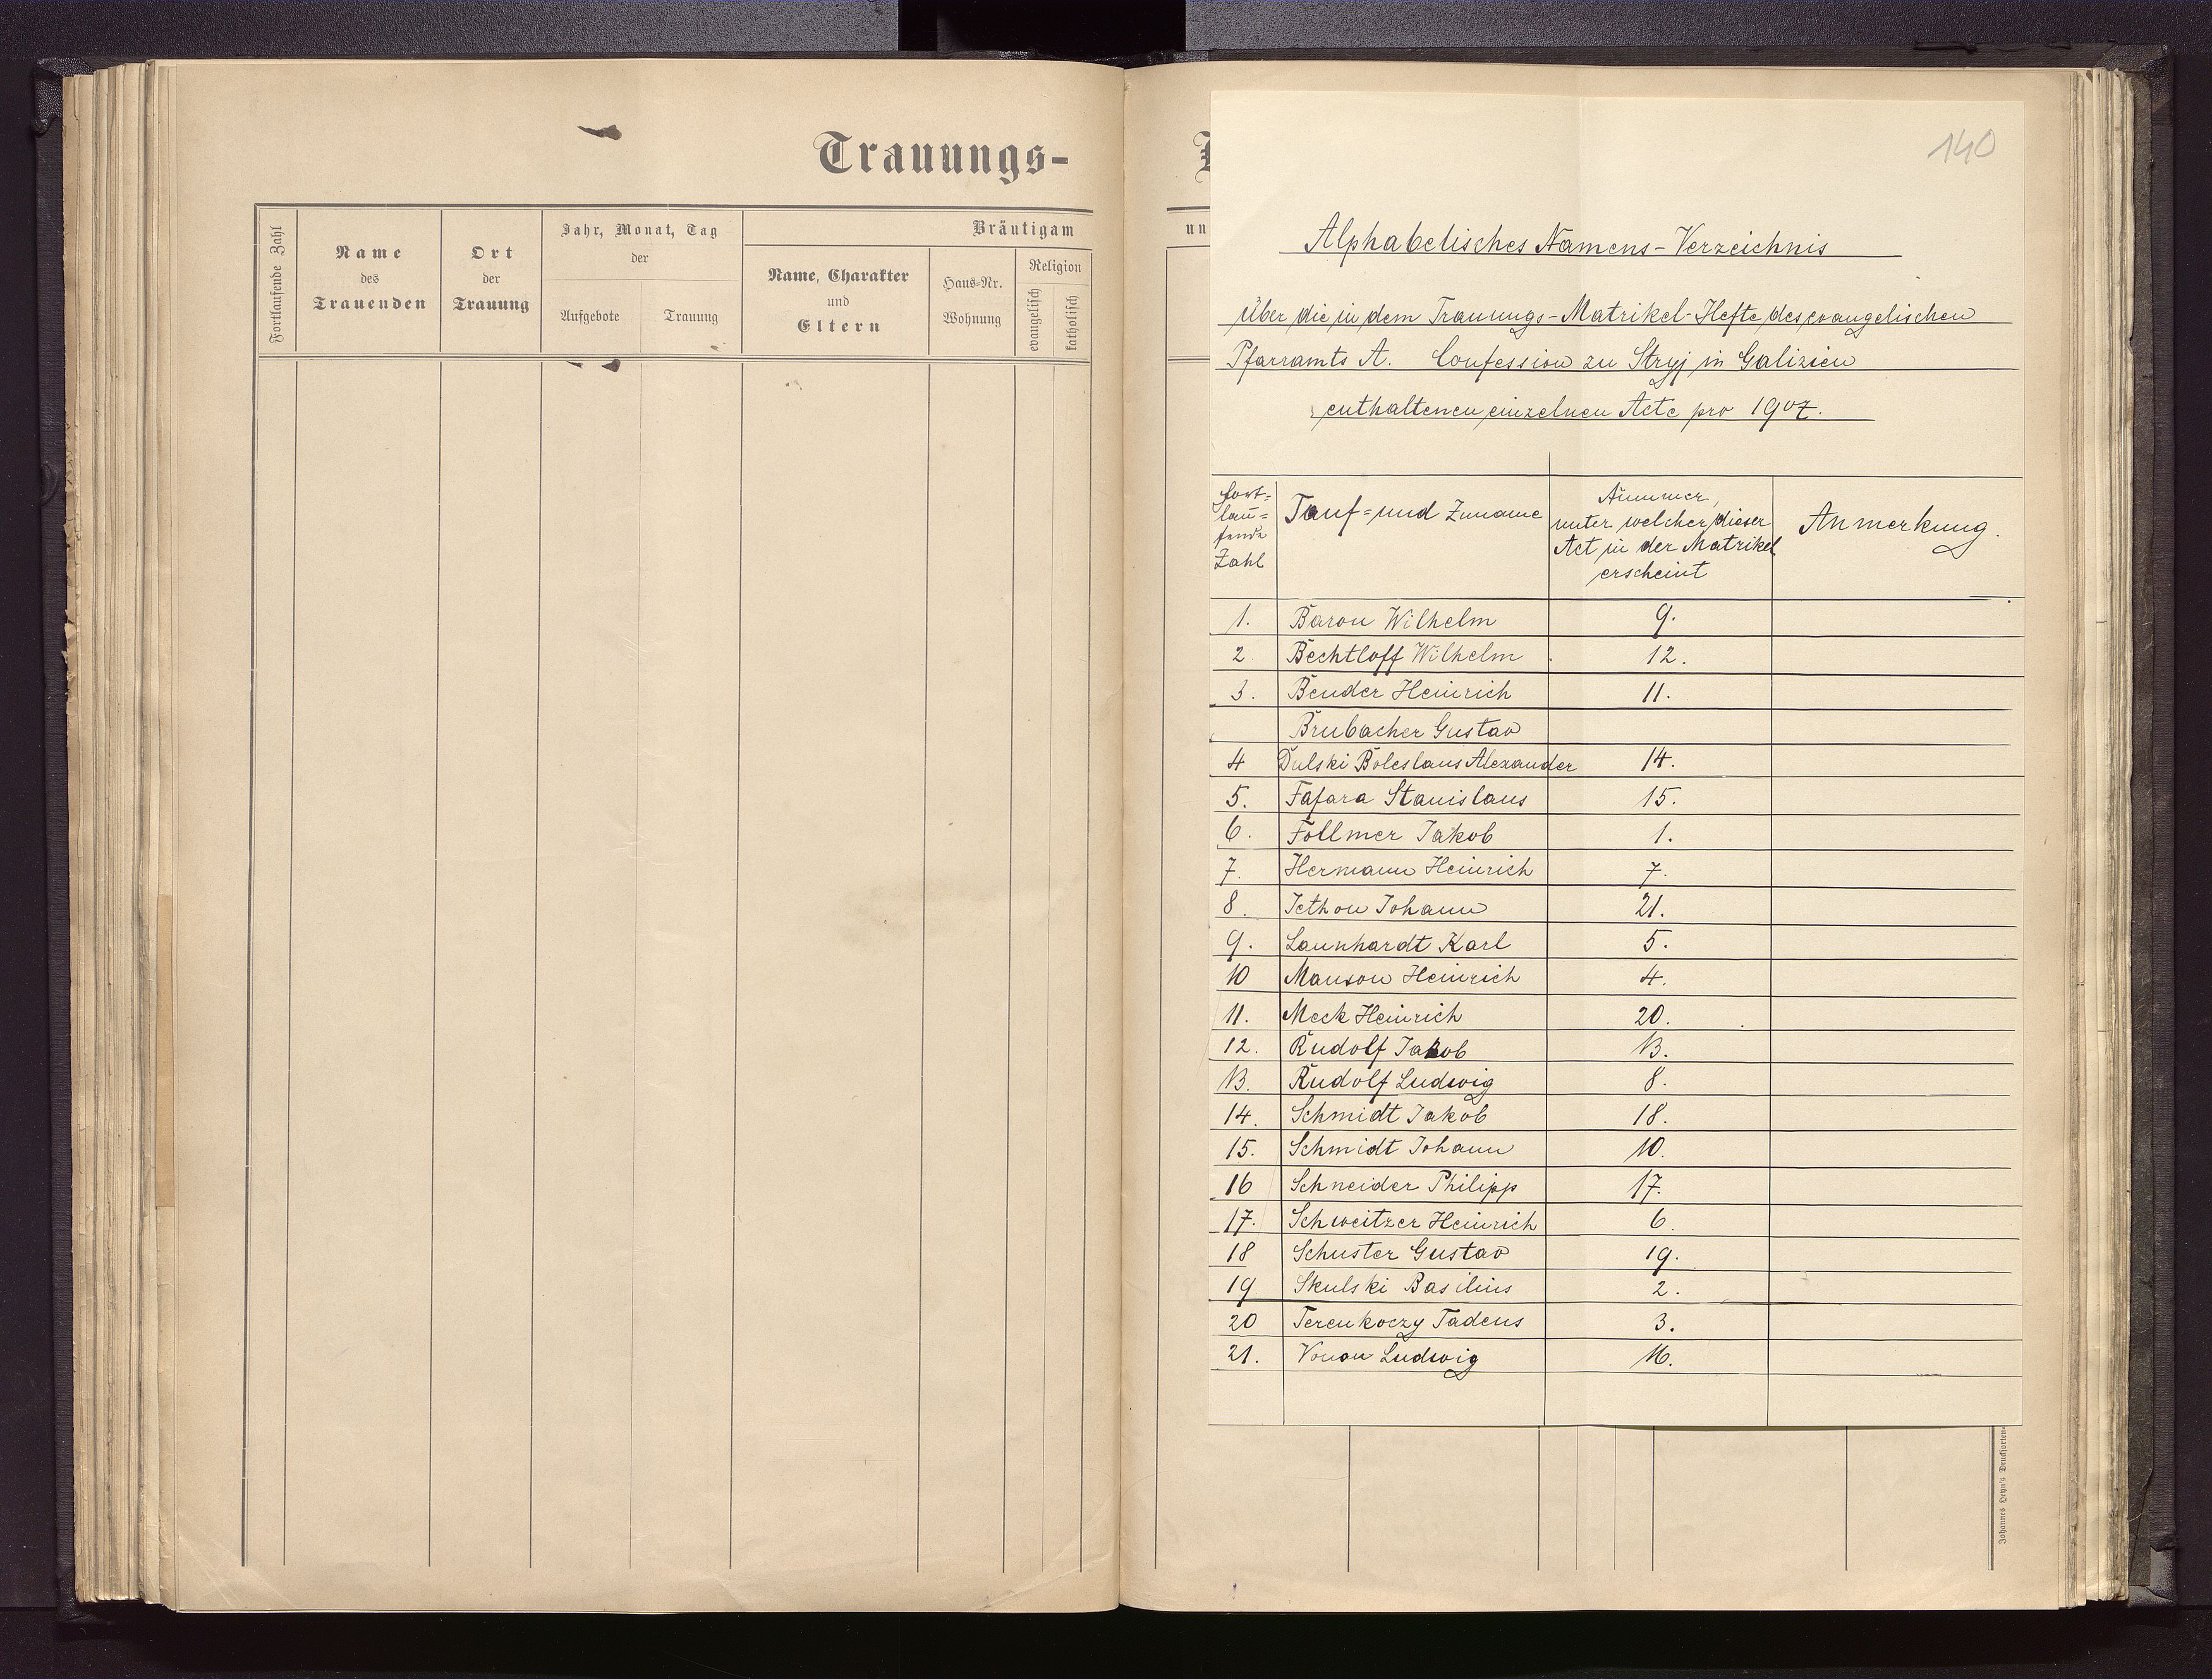 Trauungs-
Fortlaufende Zahl
Name
des
Trauenden
Ort
der
Trauung
Jahr, Monat, Tag
der
Aufgebote
Trauung
Bräutigam
Name, Charakter
und
Eltern
Haus-Nr.
Wohnung
Religion
evangelisch
katholisch
un
140
Alphabetisches Namens-Verzeichnis
Über die in dem Trauungs-Matrikel-Hefte des evangelischen
Pfarramts A. Confession zu Stryj in Galizien
enthaltenen einzelnen Acte pro 1907.
fort-
lau-
fende
Zahl
Tauf- und Zuname
Nummer,
unter welcher dieser
Act in der Matrikel
erscheint
Anmerkung.
1. Baron Wilhelm 9.
2. Bechtloff Wilhelm 12.
3. Bender Heinrich 11.
Brubacher Gustav
4 Dulski Boleslaus Alexander 14.
5. Fafara Stanislaus 15.
6. Follmer Jakob 1.
7. Hermann Heinrich 7.
8. Jethon Johann 21.
9. Launhardt Karl 5.
10 Manson Heinrich 4.
11. Meck Heinrich 20.
12. Rudolf Jakob 13.
13. Rudolf Ludwig 8.
14. Schmidt Jakob 18.
15. Schmidt Johann 10.
16 Schneider Philipp 17.
17. Schweitzer Heinrich 6.
18 Schuster Gustav 19.
19 Skulski Basilius 2.
20 Terenkoczy Tadeus 3.
21. Vonau Ludwig 16.
Johannes Heyn's Drucksorten